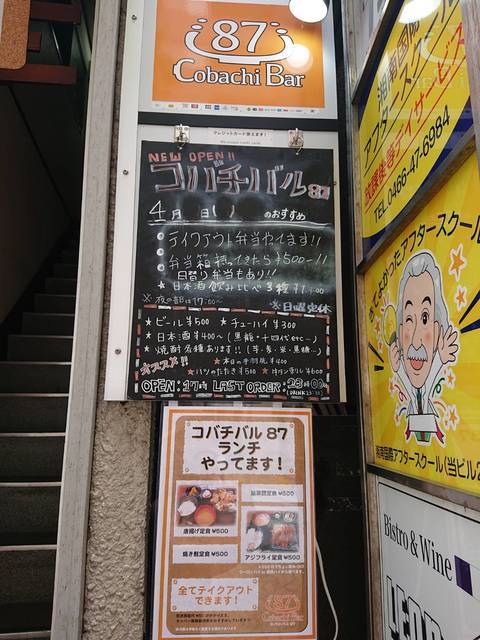 87
Cobachi Bar
クレジットカード使えます!
NEW OPEN!!
コバチバル87
4月 日( ) のおすすめ
テイクアウト弁当やてます!!
弁当箱持ってきたら¥500-!!
日替り弁当もあり!!
★日本酒飲み比べ3種
※夜の部は17:00～ ※日曜定休
★ビール¥500 ★チューハイ¥300
★日本酒¥400～(黒龍・十四代etc…)
★焼酎各種あります!!(芋・麦・米・黒糖…)
オススメ!!
OPEN:17時 LAST ORDER:23時00
コバチバル 87
ランチ
やってます!
唐揚げ定食 ¥500
アジフライ定食 ¥500
全てテイクアウト
できます!
87
Cobachi Bar
湘南国際
アフタースクール
放課後等デイサービス
TEL.0466-47-6984
アフタースクール
湘南国際アフタースクール(当ビル2
Bistro & Wine